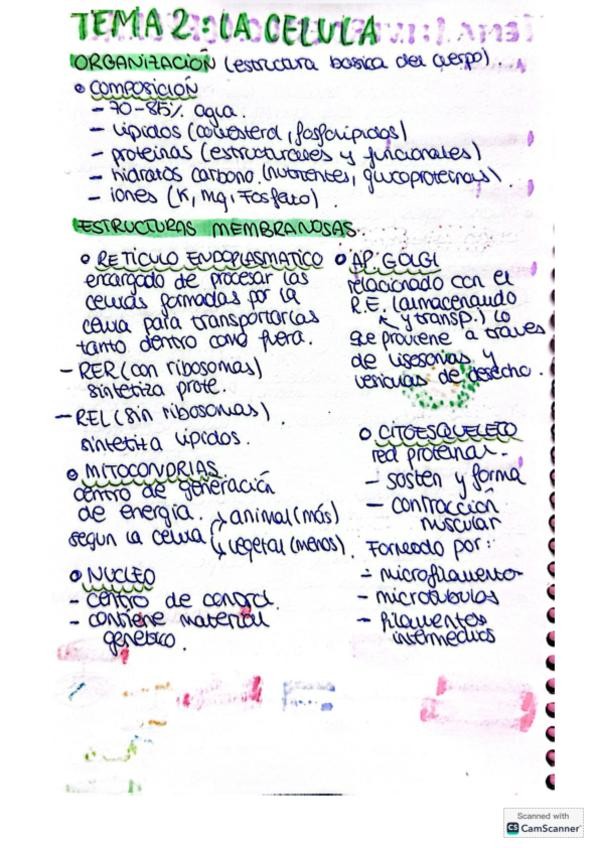 TEMA 2: LA CELULA
ORGANIZACIÓN (estructura basica del cuerpo).
• COMPOSICIÓN
- 70-85% agua.
- lípidos (colesterol, fosfolipidos)
- proteinas (estructurales y funcionales)
- hidratos carbono (nutrientes, glucoproteinas)
- iones (K, Mg, Fosfato)
ESTRUCTURAS MEMBRANOSAS.
• RETICULO ENDOPLASMATICO
encargado de procesar las
celulas formadas por la
celula para transportarlas
tanto dentro como fuera.
- RER (con ribosomas)
sintetiza prote.
- REL (sin ribosomas)
sintetiza lipidos.
• MITOCONDRIAS.
centro de generación
de energía.
segun la celula
animal (más)
vegetal (menos).
• NUCLEO
- centro de control.
- contiene material
genetico.
• AP. GOLGI
relacionado con el
R.E. (almacenando
y transp.) lo
que proviene a traves
de lisosomas y
vesiculas de desecho.
• CITOESQUELETO
red proteinar.
- sosten y forma
- contracción
muscular
Formado por:
- microfilamento
- microtubulos
- filamentos
intermedios
Scanned with
CS CamScanner